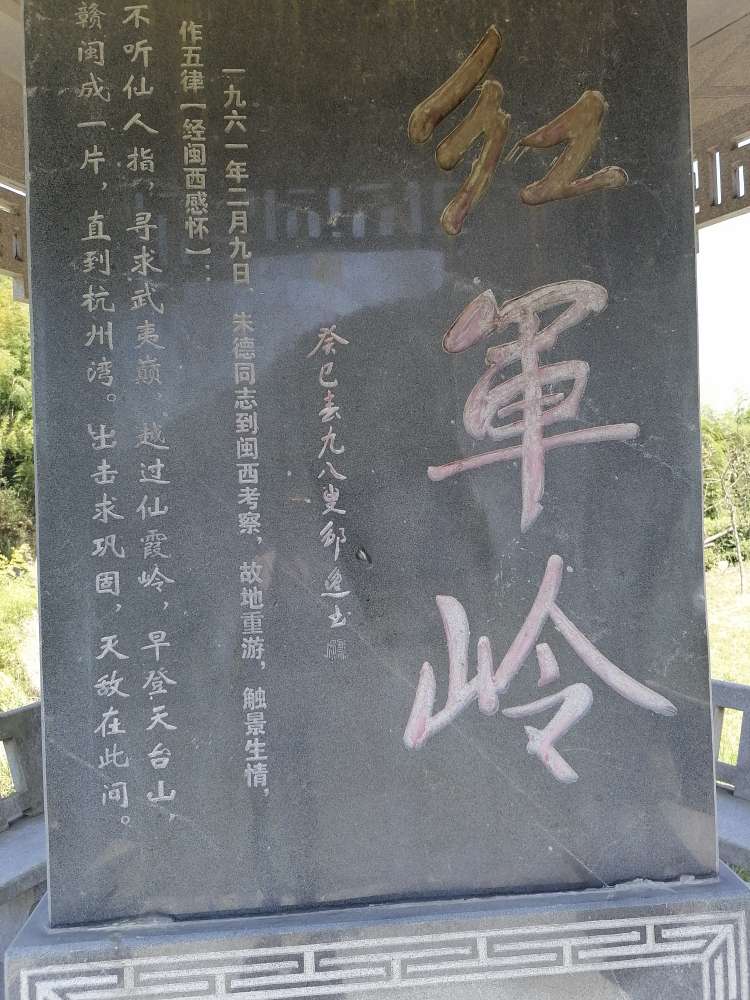 红軍岭
癸巳春九八叟
一九六一年二月九日，朱德同志到闽西考察，故地重游，触景生情，
作五律【经闽西感怀】：
不听仙人指，寻求武夷巅，越过仙霞岭，早登天台山，
赣闽成一片，直到杭州湾。出击求巩固，灭敌在此间。